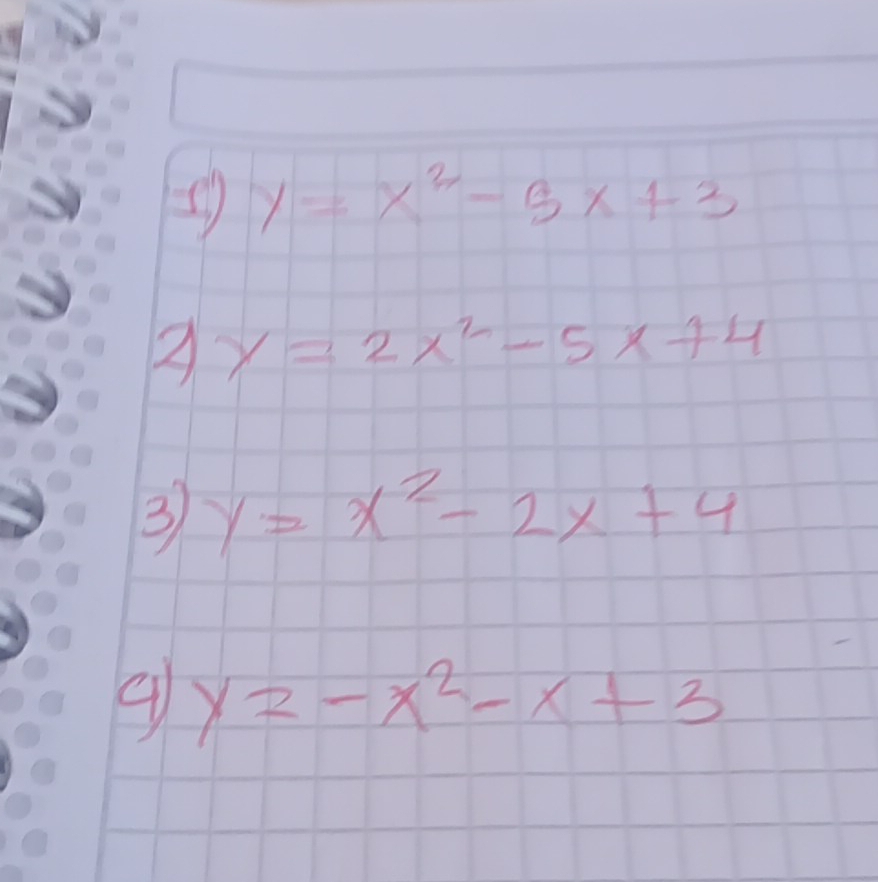 1) y = x² - 5x + 3
2) y = 2x² - 5x + 4
3) y = x² - 2x + 4
4) y = -x² - x + 3